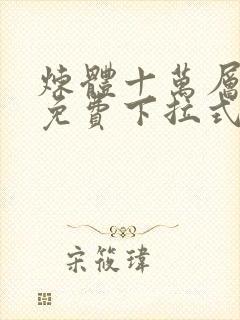 煉體十萬層
免費下拉式
宋筱瑋